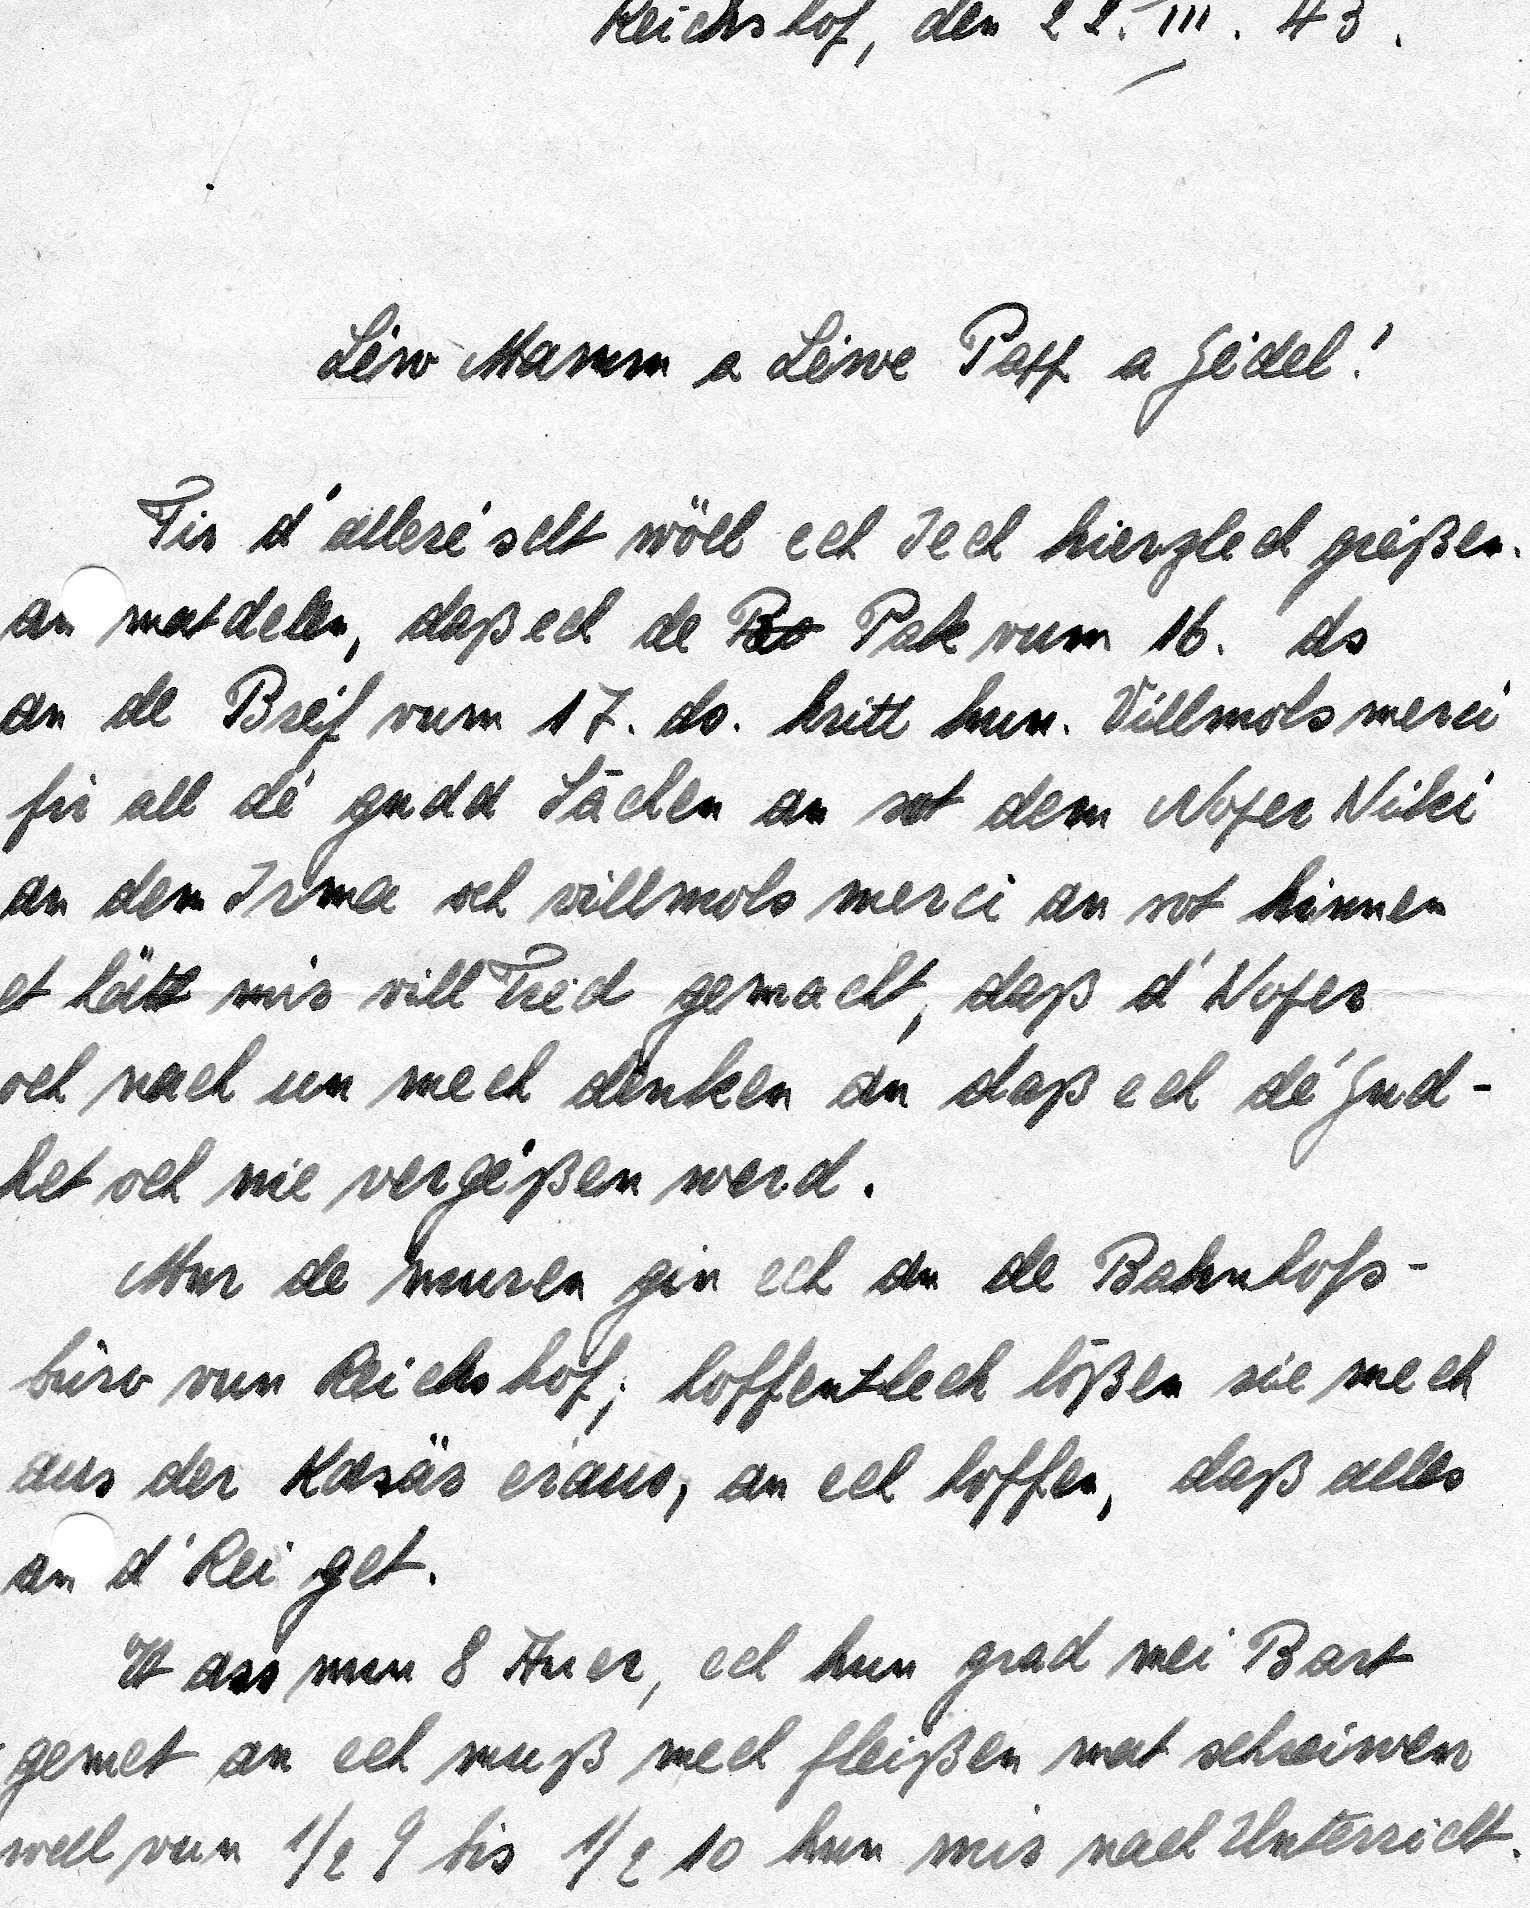 Reichshof, den 22. III. 43.
Léiw Mamm a Léiwe Papp a Gédel!
Fir d'alleréischt wöll ech Iech hierzlech gréißen.
an matdelen, daß ech de Pak vum 16. ds
an de Bréif vum 17. ds. kritt hun. Villmols merci
fir all dé gudd Sächen an sot dem Noper Nicki
an dem Irma och villmols merci an sot hinnen
et hätt mir vill Fréd gemacht, daß d'Noper
och nach un mech denken an daß ech dé Gud-
het och nie vergéßen werd.
Mar de muren gin ech an de Bahnhofs-
büro vun Reichshof; hoffentlech lößen sie mech
aus der Kasär eraus, an ech hoffen, daß alles
an d'Rei get.
Et ass nun 8 Auer, ech hun grad mei Bart
gemet an ech muß mech fleißen mat schreiwen
well vun 1/2 9 bis 1/2 10 hun mir nach Unterricht.